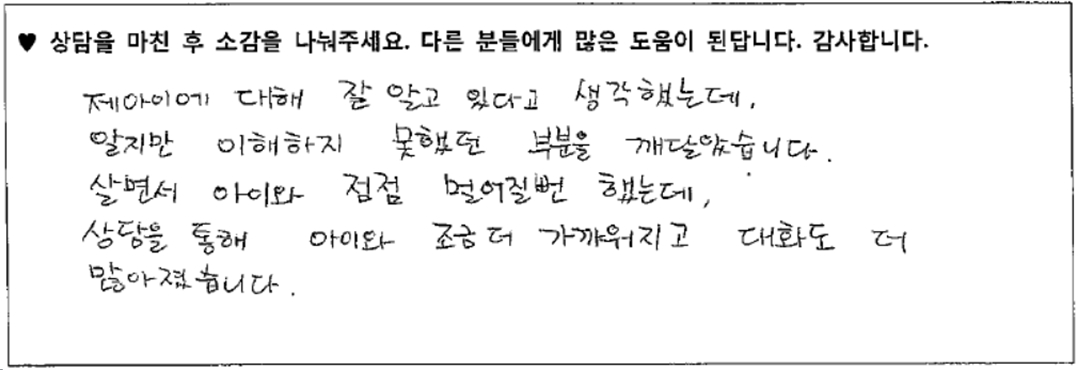 ♥ 상담을 마친 후 소감을 나눠주세요. 다른 분들에게 많은 도움이 된답니다. 감사합니다.
제아이에 대해 잘 알고 있다고 생각했는데,
알지만 이해하지 못했던 부분을 깨달았습니다.
살면서 아이와 점점 멀어질번 했는데,
상담을 통해 아이와 조금 더 가까워지고 대화도 더
많아졌습니다.